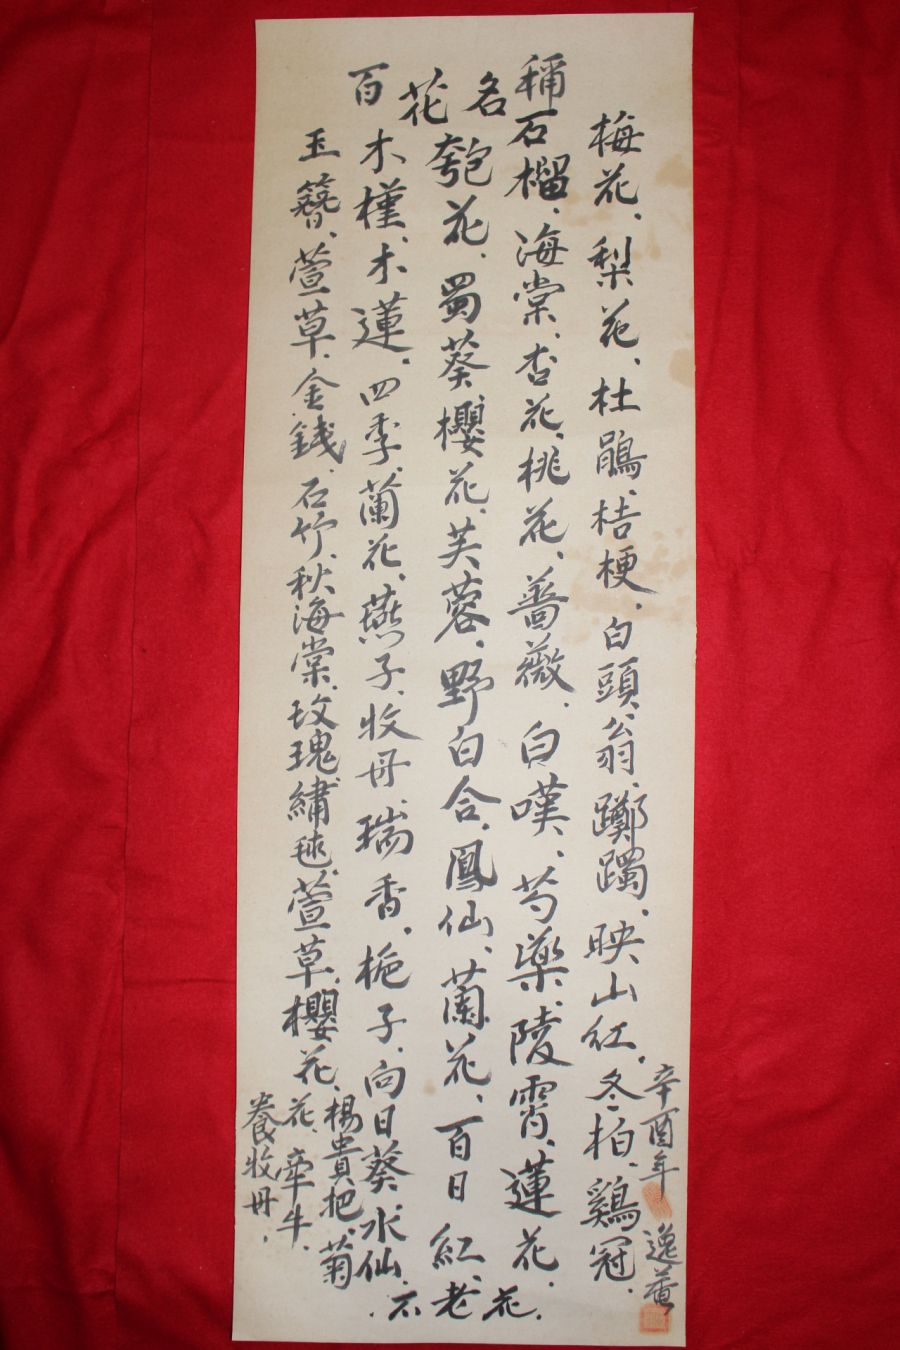 百花名稱
梅花、梨花、杜鵑、桔梗、白頭翁、躑躅、映山紅、冬柏、鷄冠、
石榴、海棠、杏花、桃花、薔薇、白嘆、芍藥、陵霄、蓮花、
匏花、蜀葵、櫻花、芙蓉、野白合、鳳仙、蘭花、百日紅、
不老花、
木槿、木蓮、四季、蘭花、燕子、牧丹、瑞香、梔子、向日葵、水仙、
玉簪、萱草、金錢、石竹、秋海棠、玫瑰、繡毬、萱草、櫻花、
楊貴把、菊
花、牽牛、
養牧丹、
辛酉年 逸菴